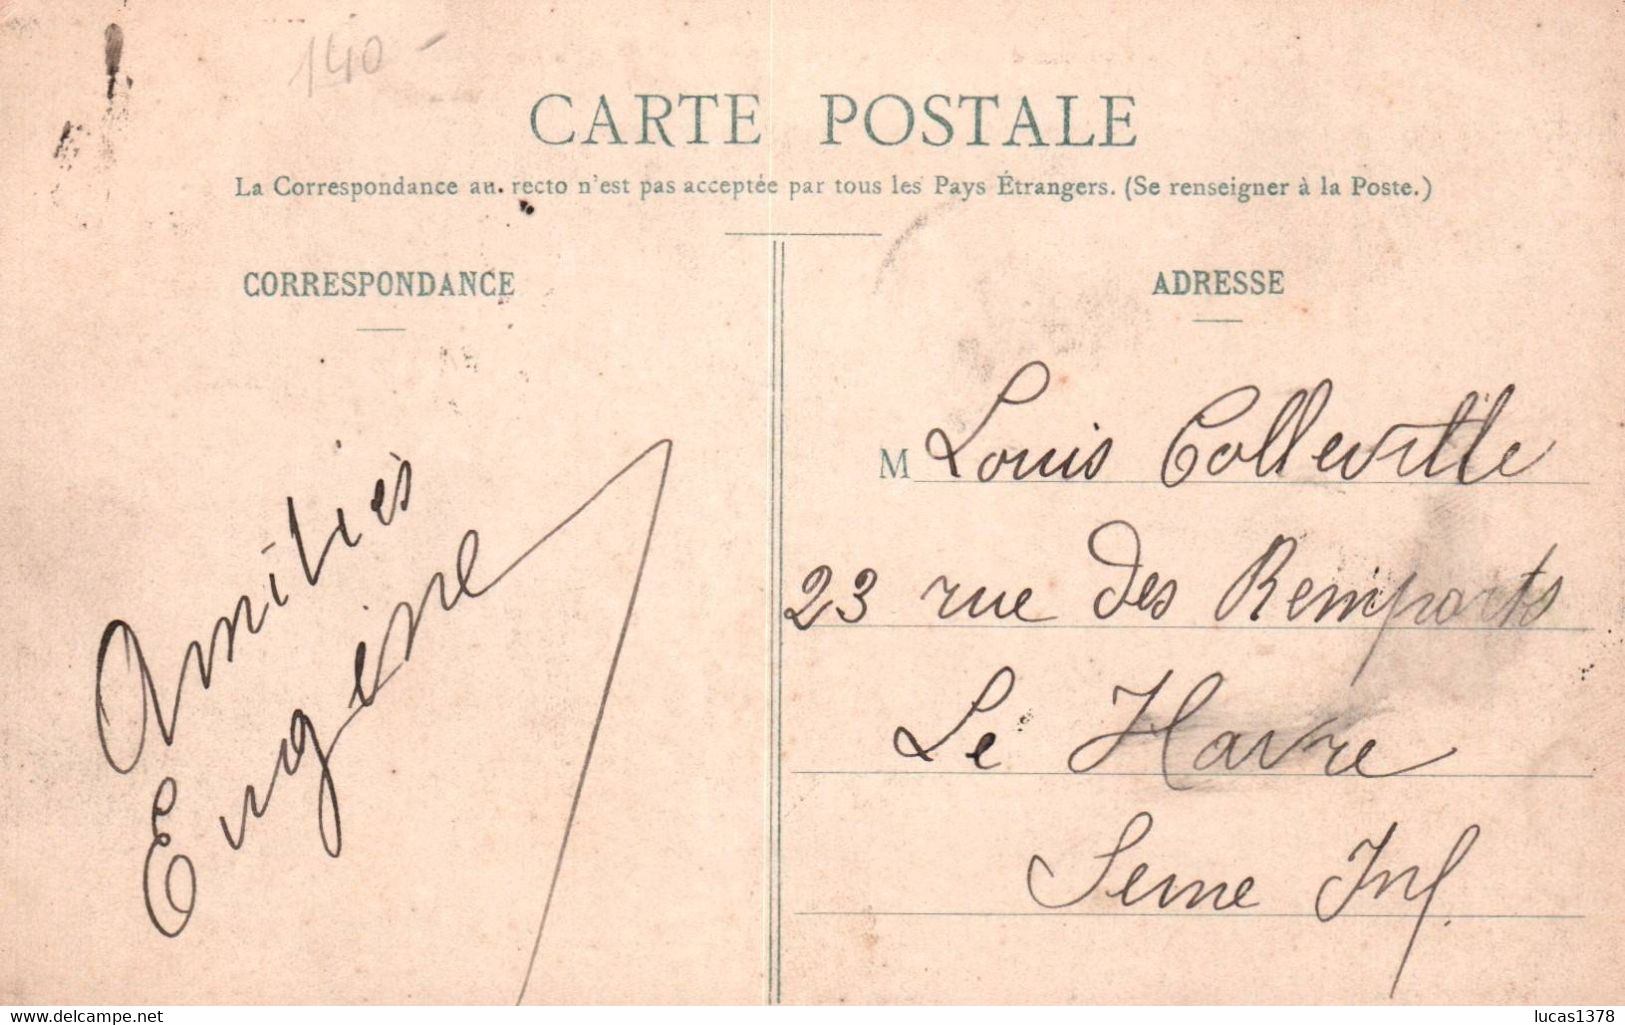 140 -
CARTE POSTALE
La Correspondance au recto n'est pas acceptée par tous les Pays Étrangers. (Se renseigner à la Poste.)
CORRESPONDANCE
Amitiés
Eugène
ADRESSE
M Louis Colleville
23 rue des Remparts
Le Havre
Seine Inf.
www.delcampe.net
lucas1378